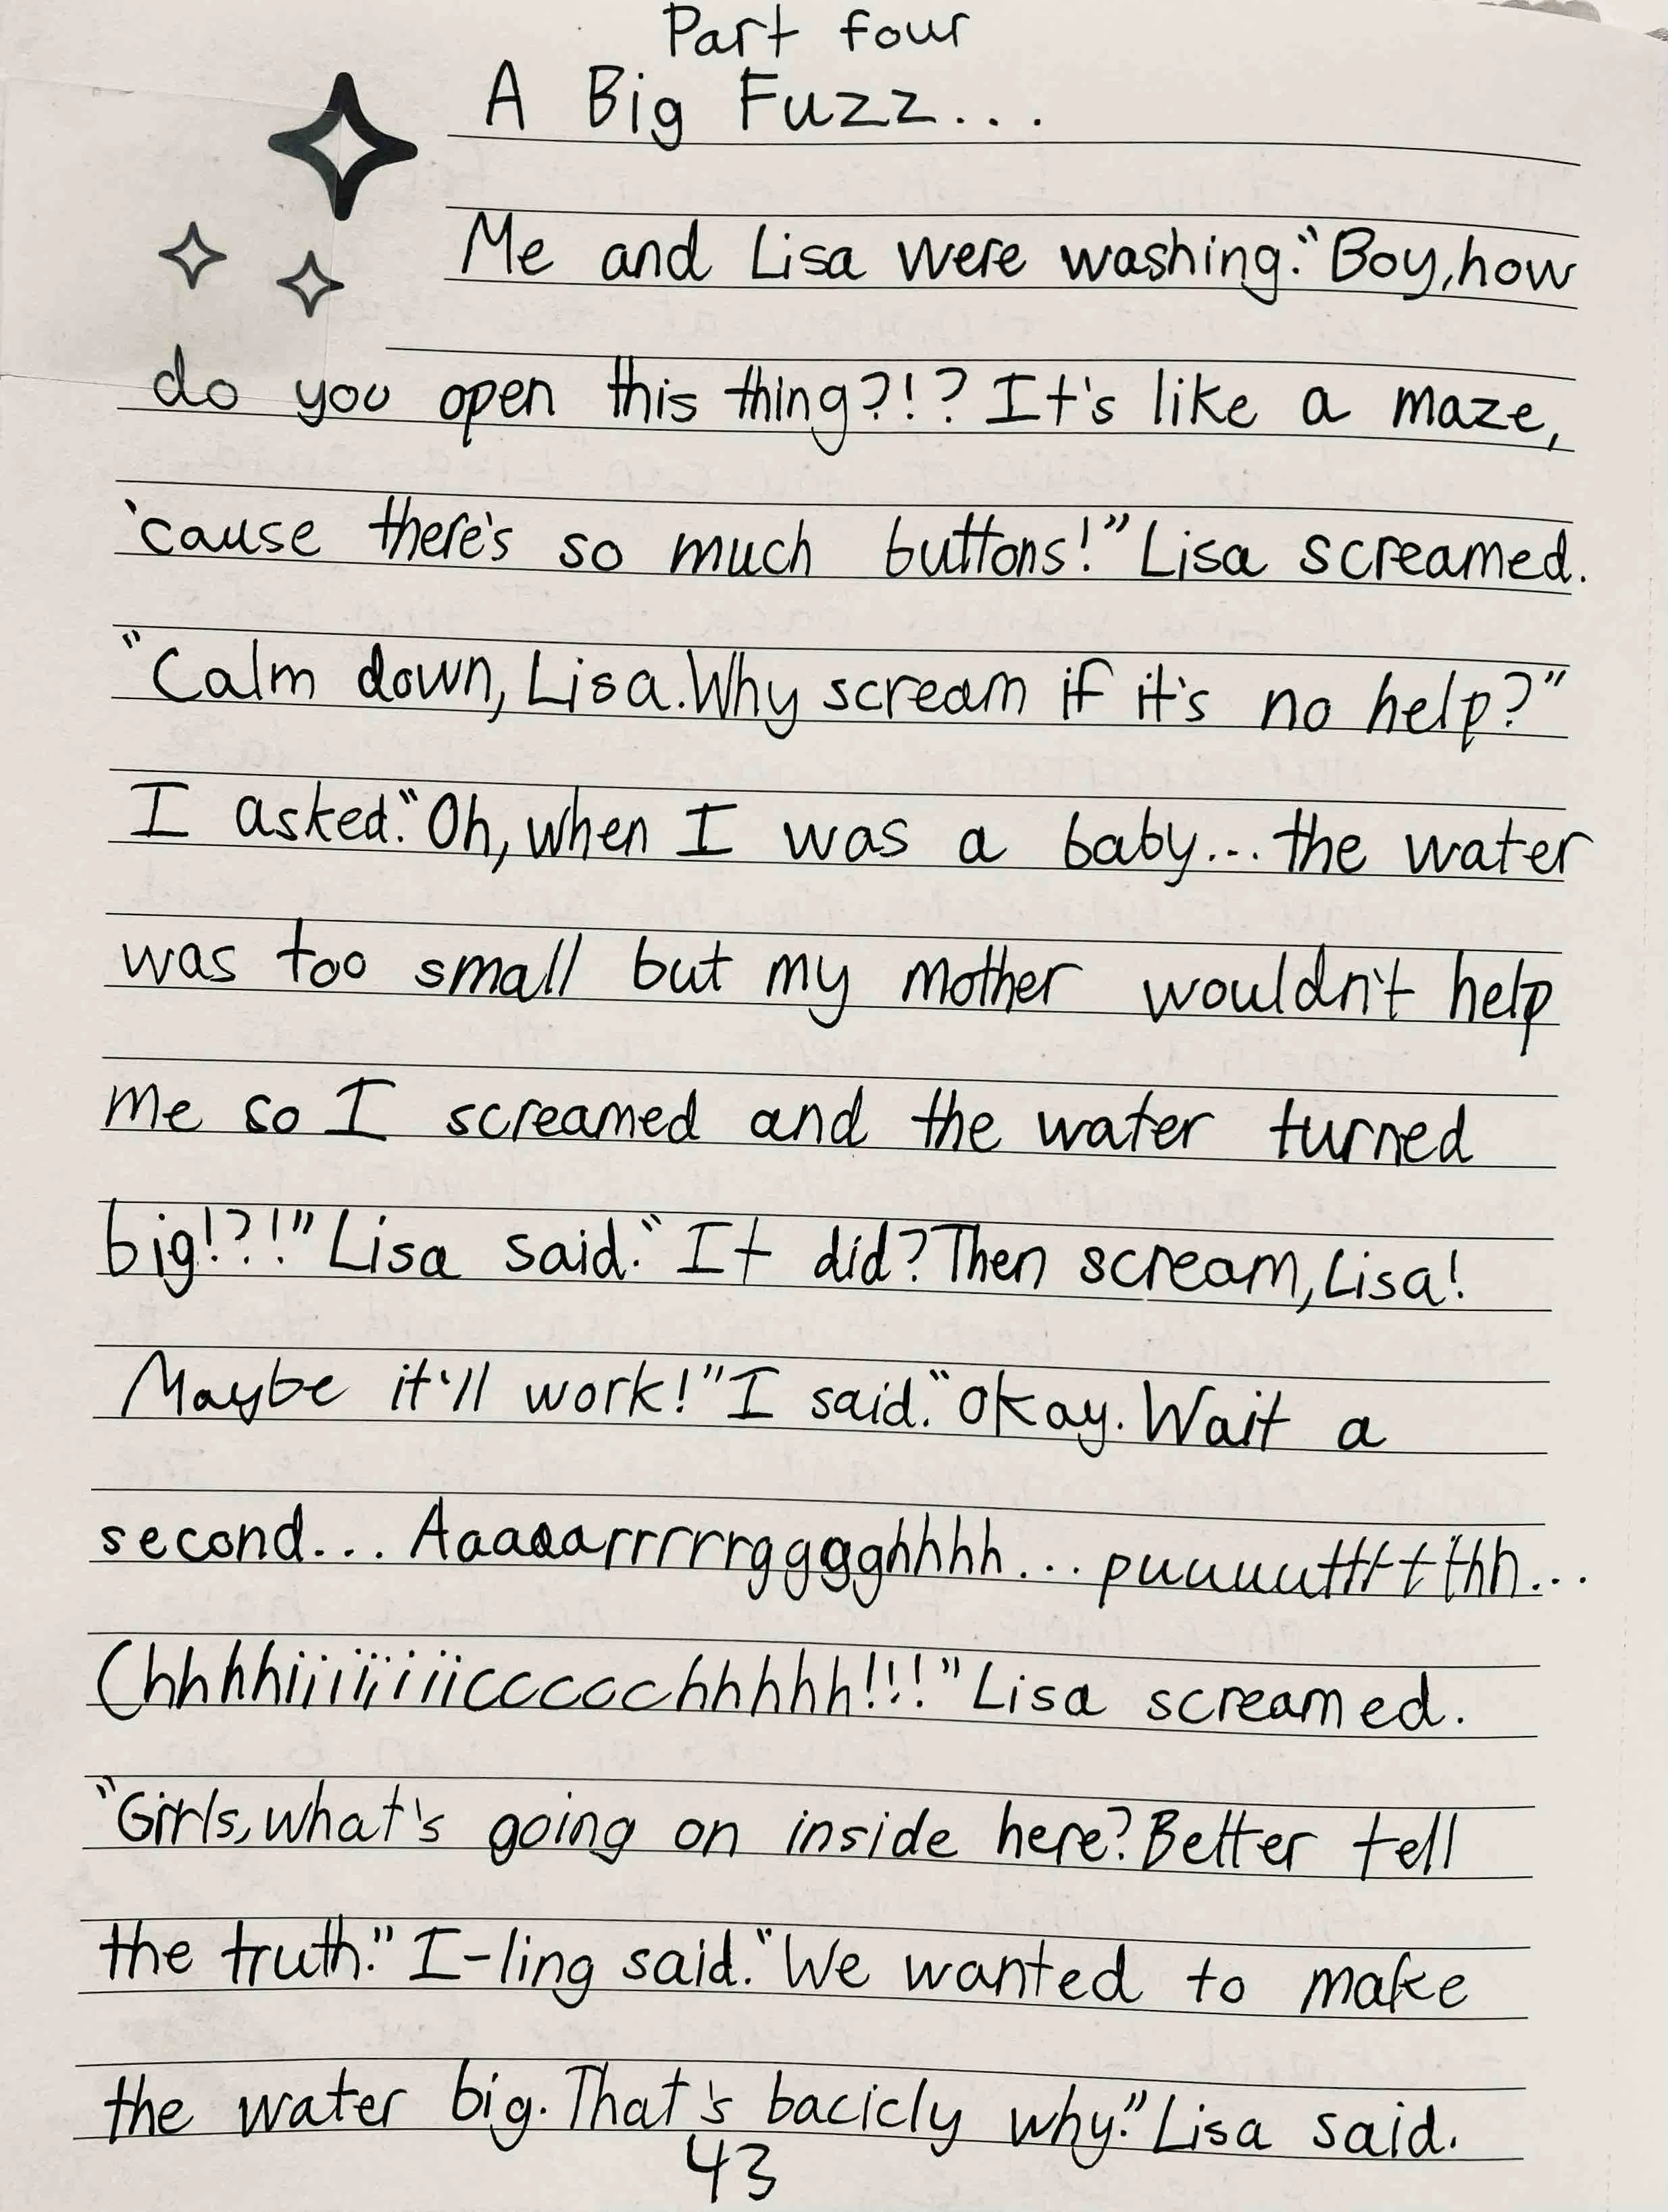 Part four
A Big Fuzz...
Me and Lisa were washing. "Boy, how
do you open this thing?!? It's like a maze,
'cause there's so much buttons!" Lisa screamed.
"Calm down, Lisa. Why scream if it's no help?"
I asked. "Oh, when I was a baby... the water
was too small but my mother wouldn't help
me so I screamed and the water turned
big!?!" Lisa said. "It did? Then scream, Lisa!
Maybe it'll work!" I said. "Okay. Wait a
second... Aaaaaarrrrrrggggghhhh... puuuuuttttthh...
Chhhhiiiiiiiiicccccchhhhh!!!" Lisa screamed.
"Girls, what's going on inside here? Better tell
the truth." I-ling said. "We wanted to make
the water big. That's bacicly why." Lisa said.
43